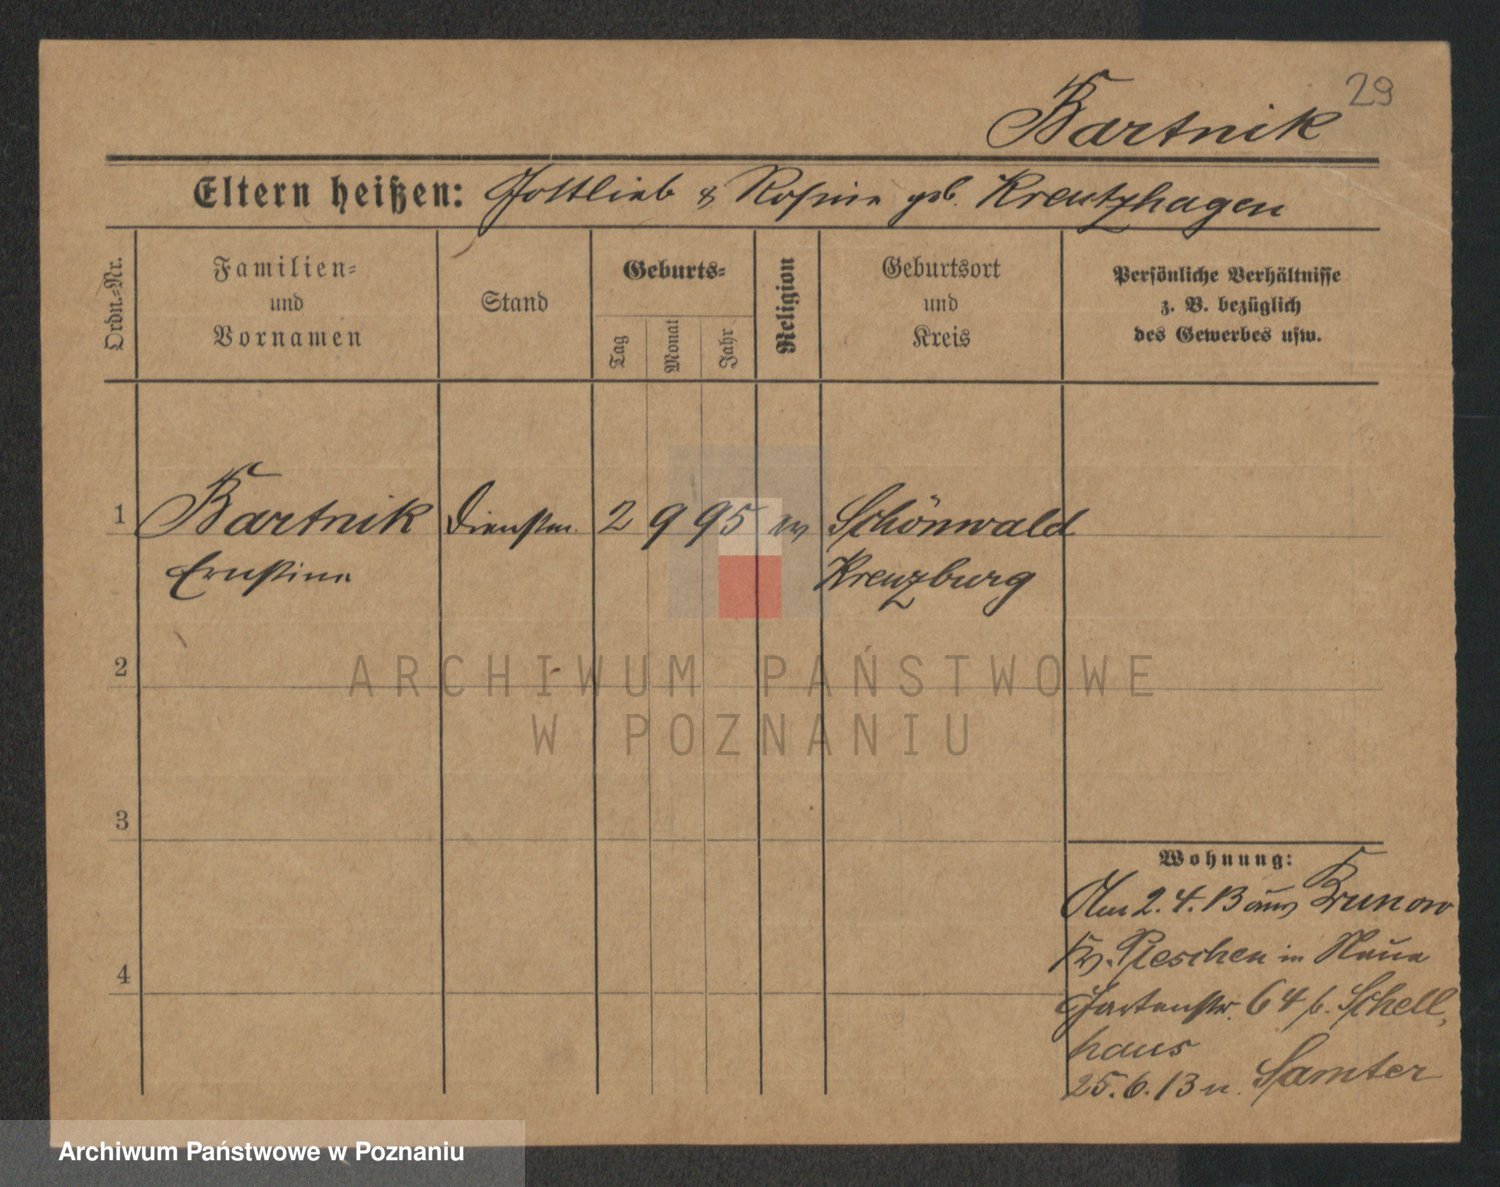 29
Bartnik
Eltern heißen: Gottlieb & Rosine geb. Kreutzhagen
Ordn.-Nr.
Familien-
und
Vornamen
Stand
Geburts-
Tag
Monat
Jahr
Religion
Geburtsort
und
Kreis
Persönliche Verhältnisse
z. B. bezüglich
des Gewerbes usw.
1 Bartnik Dienstm. 2 9 95 ev Schönwald
Ernstine Kreuzburg
2
3
4
Wohnung:
Am 2. 4. 13 aus Brunow
Kr. Pleschen in Neue
Gartenstr. 64 b. Schell-
haus
25. 6. 13 n. Samter
ARCHIWUM PAŃSTWOWE
W POZNANIU
Archiwum Państwowe w Poznaniu